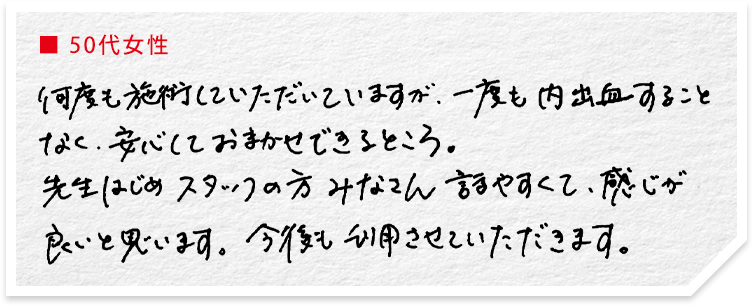 ■ 50代女性
何度も施術していただいていますが、一度も内出血すること
なく、安心しておまかせできるところ。
先生はじめスタッフの方みなさん話やすくて、感じが
良いと思います。今後も利用させていただきます。